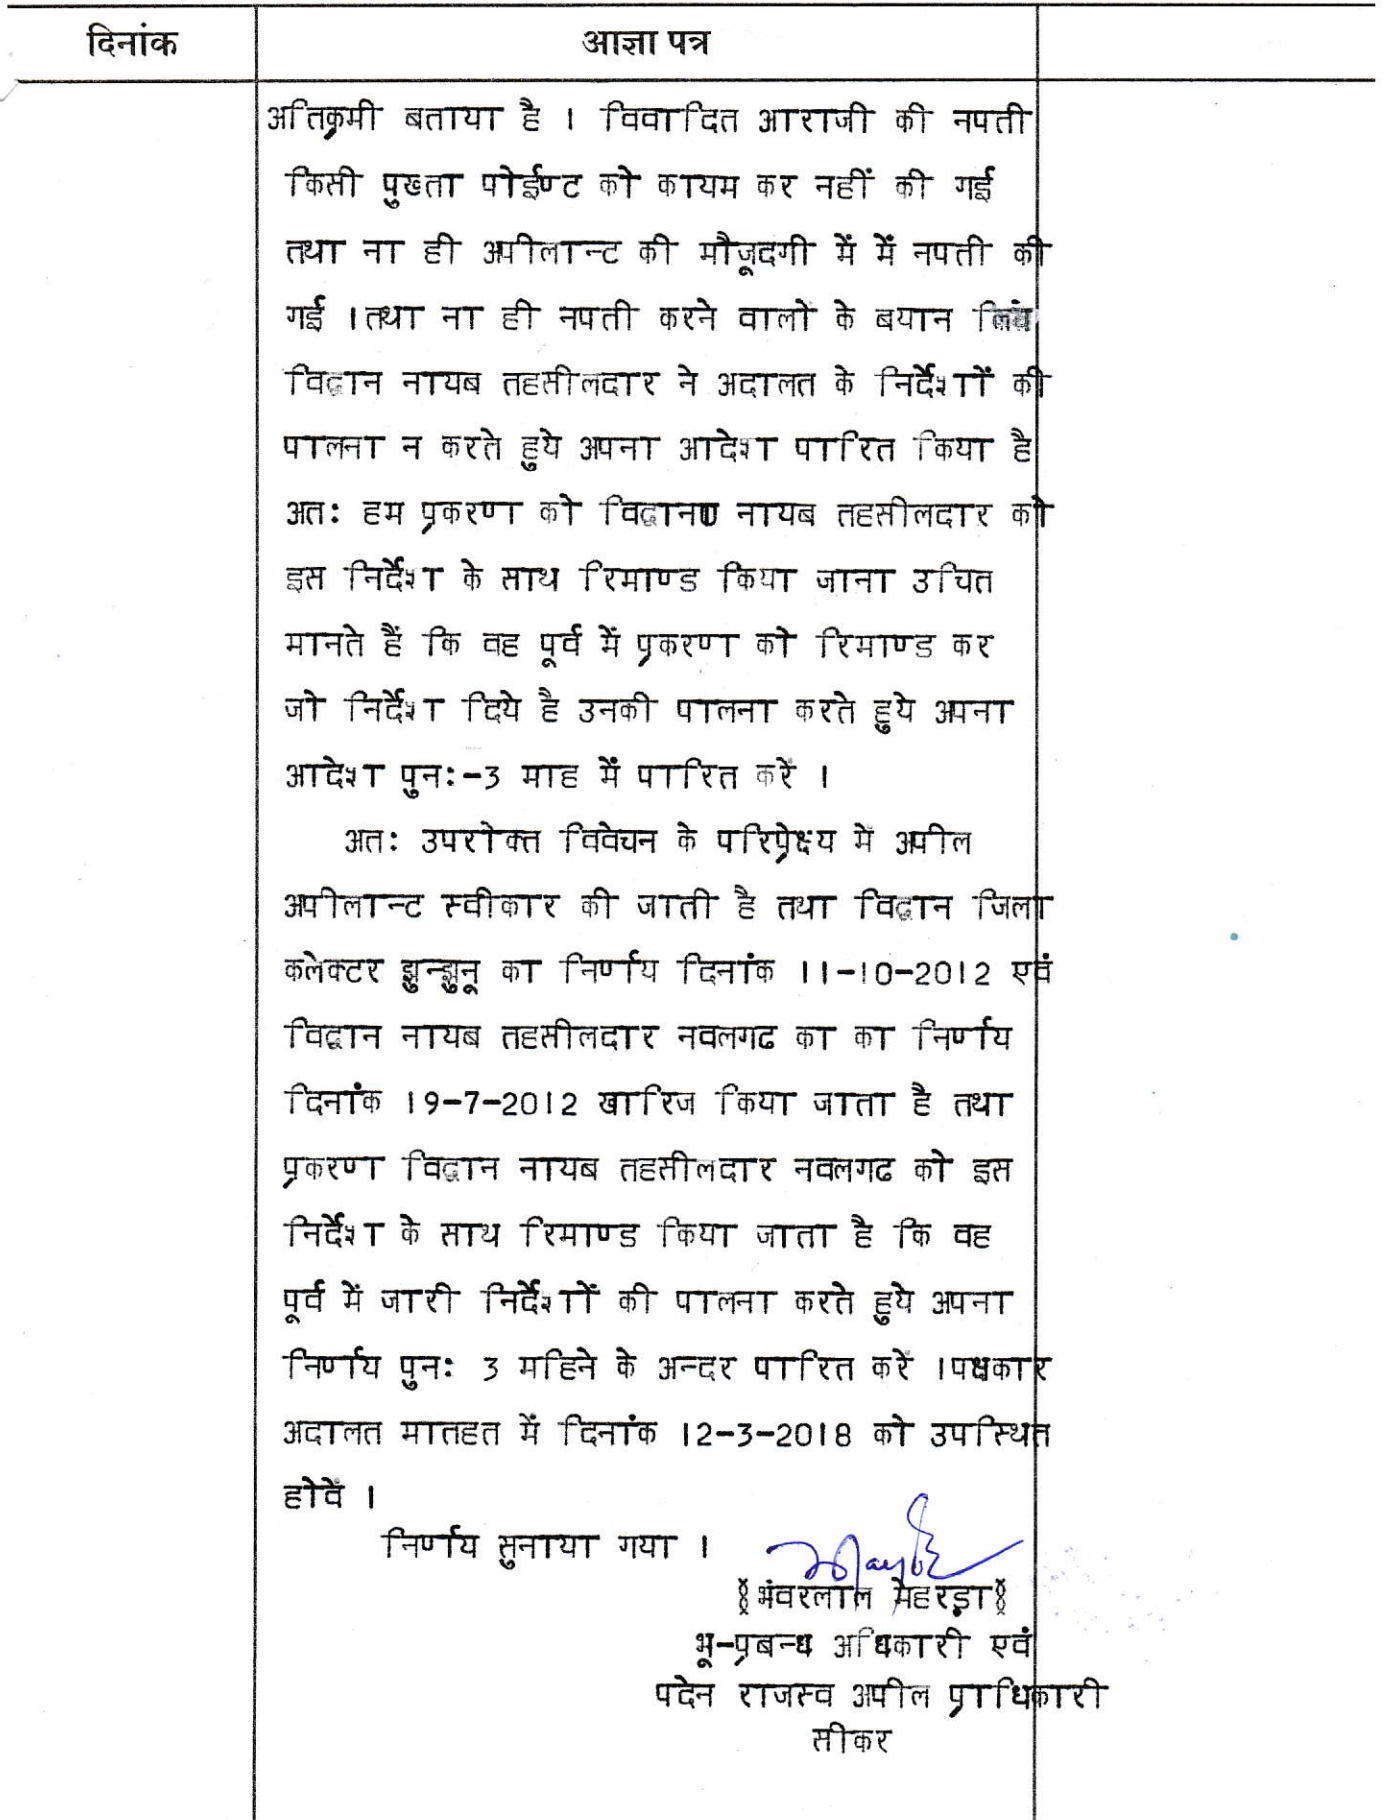 दिनांक आज्ञा पत्र
अतिक्रमी बताया है । विवादित आराजी की नपती
किसी पुख्ता पोईण्ट को कायम कर नहीं की गई
तथा ना ही अपीलान्ट की मौजूदगी में में नपती की
गई ।तथा ना ही नपती करने वालो के बयान
विद्वान नायब तहसीलदार ने अदालत के निर्देशों की
पालना न करते हुये अपना आदेश पारित किया है
अतः हम प्रकरण को विद्वानण नायब तहसीलदार को
इस निर्देश के साथ रिमाण्ड किया जाना उचित
मानते हैं कि वह पूर्व में प्रकरण को रिमाण्ड कर
जो निर्देश दिये है उनकी पालना करते हुये अपना
आदेश पुनः-3 माह में पारित करें ।
अतः उपरोक्त विवेचन के परिप्रेक्ष्य में अपील
अपीलान्ट स्वीकार की जाती है तथा विद्वान जिला
कलेक्टर झुन्झुनू का निर्णय दिनांक 11-10-2012 एवं
विद्वान नायब तहसीलदार नवलगढ का का निर्णय
दिनांक 19-7-2012 खारिज किया जाता है तथा
प्रकरण विद्वान नायब तहसीलदार नवलगढ को इस
निर्देश के साथ रिमाण्ड किया जाता है कि वह
पूर्व में जारी निर्देशों की पालना करते हुये अपना
निर्णय पुनः 3 महिने के अन्दर पारित करें ।पक्षकार
अदालत मातहत में दिनांक 12-3-2018 को उपस्थित
होवें ।
निर्णय सुनाया गया ।
§भंवरलाल मेहरड़ा§
भू-प्रबन्ध अधिकारी एवं
पदेन राजस्व अपील प्राधिकारी
सीकर